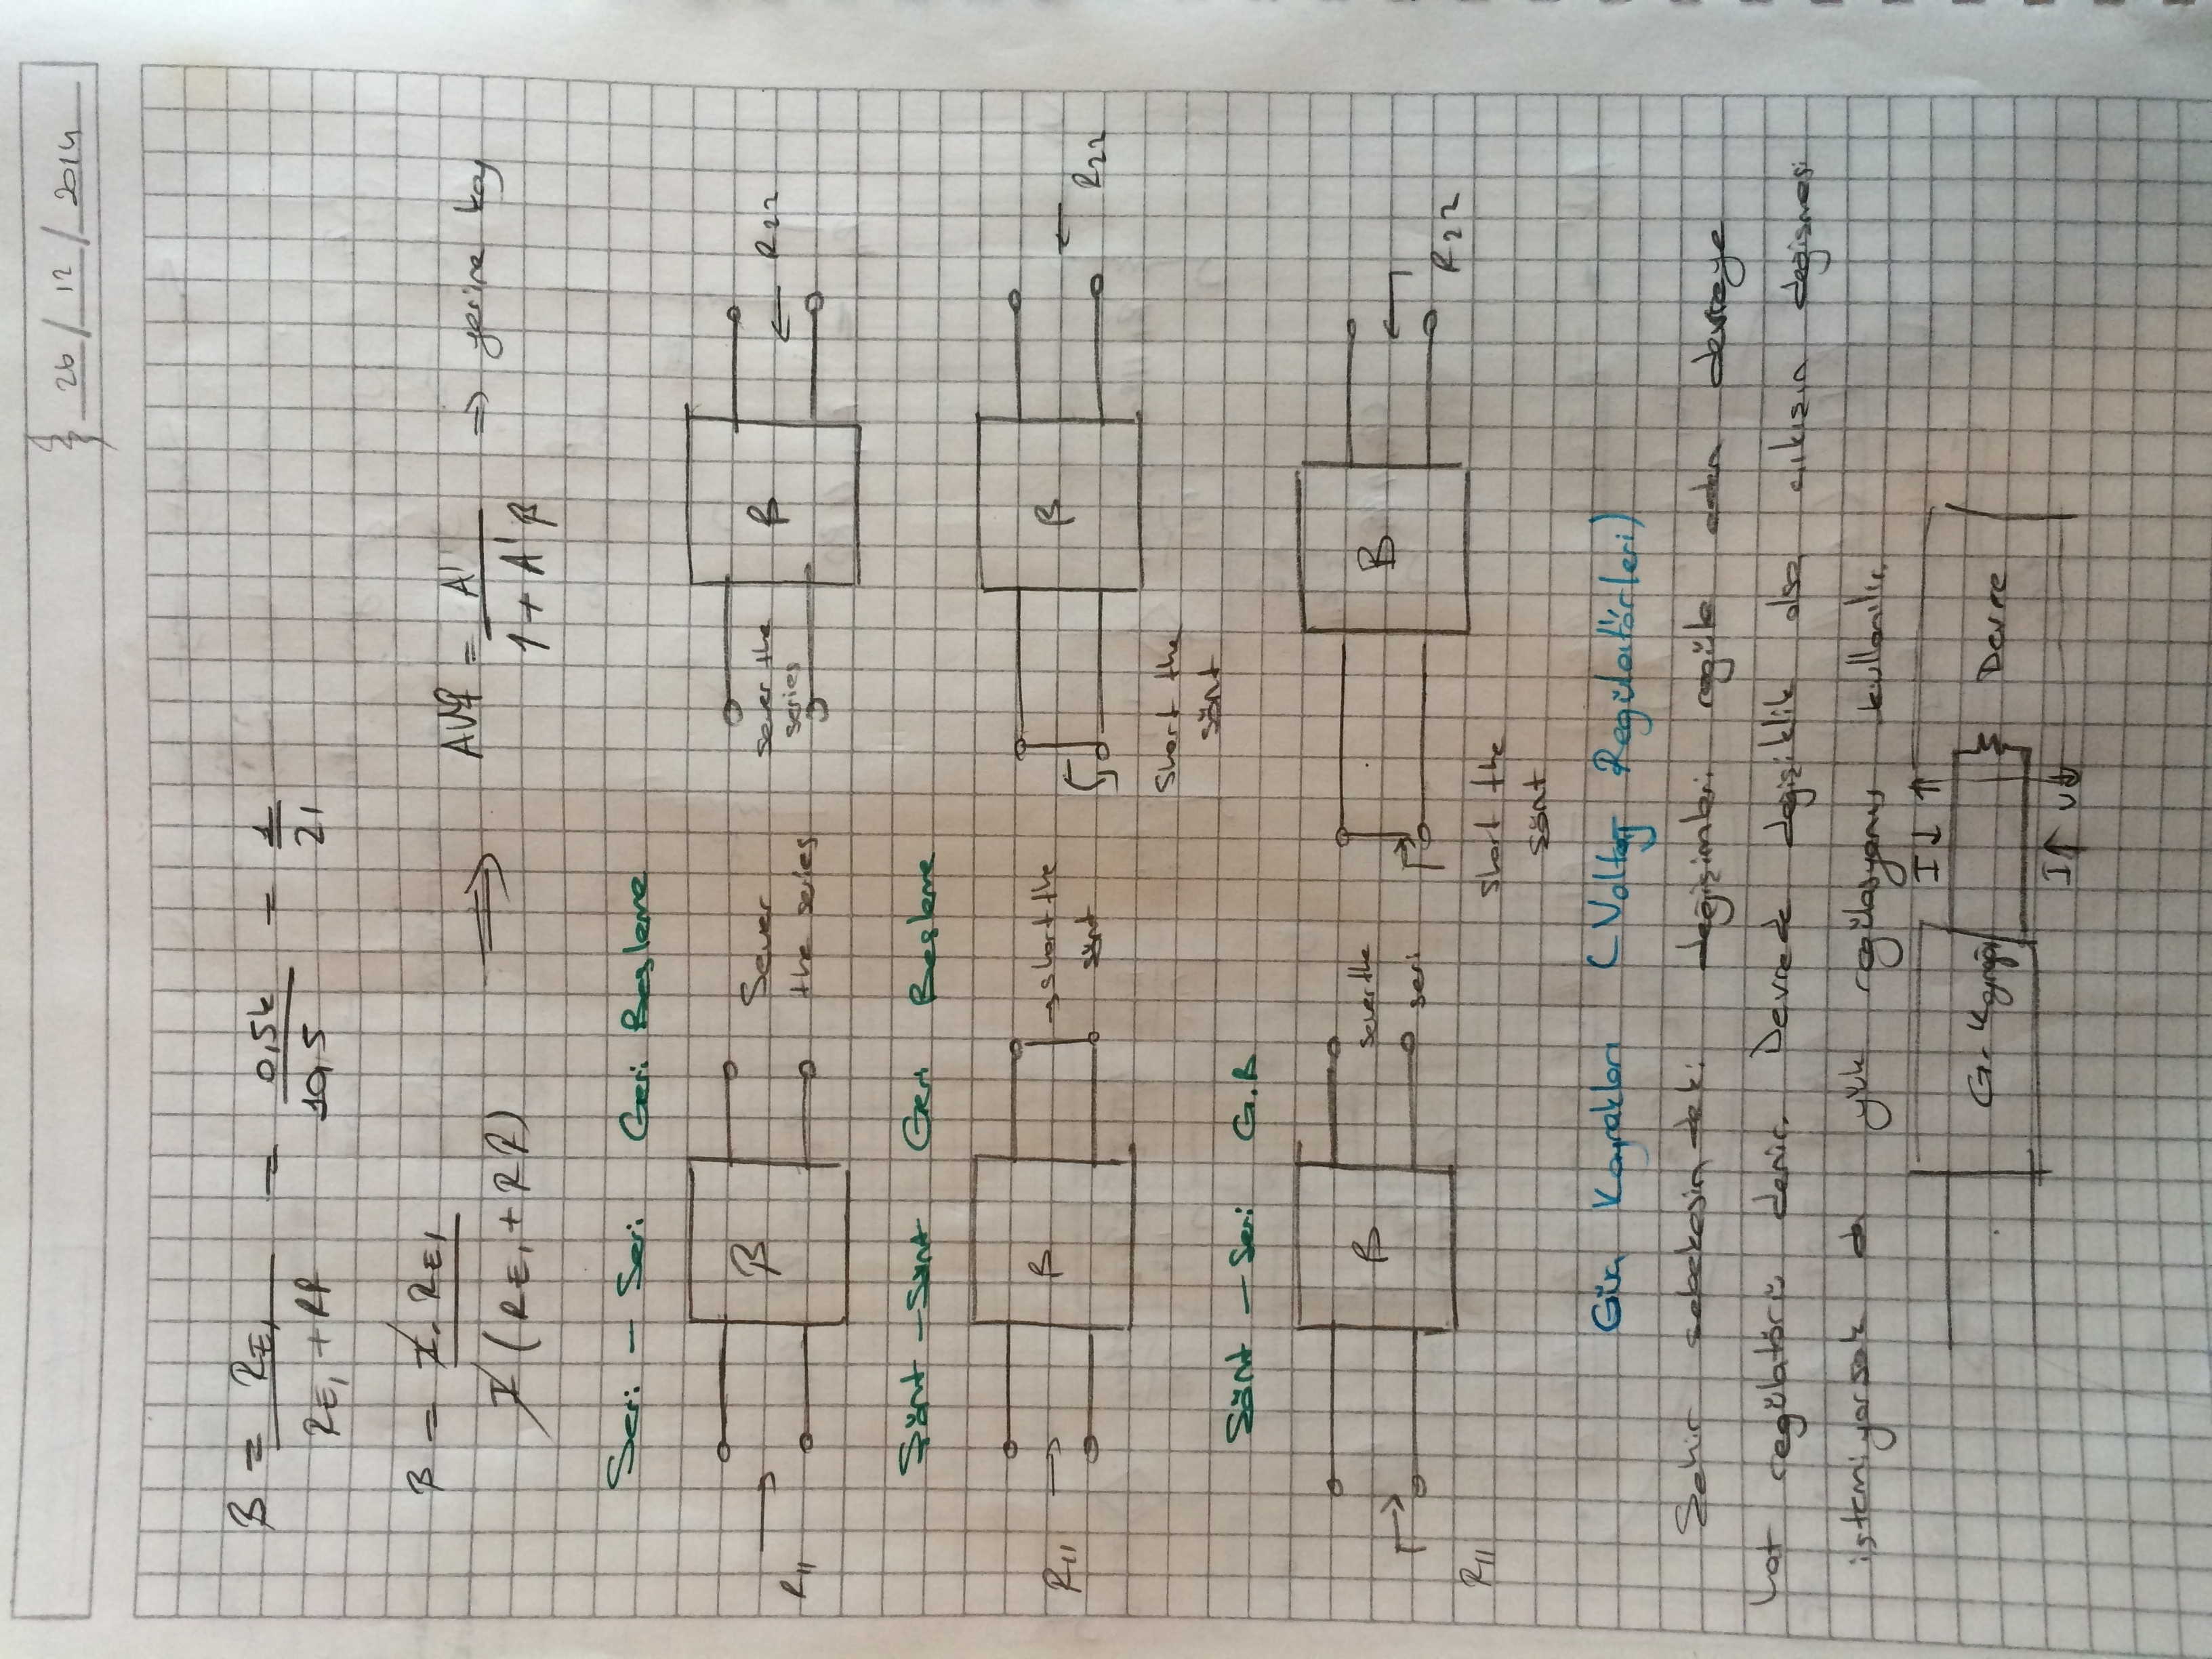 26 / 12 / 2014
β = RE1 / (RE1 + RF) = 0,5k / 10,5 = 1 / 21
β = I. RE1 / I (RE1 + RF) ⟹ AVf = A' / (1 + A'β) ⇒ yerine koy
Seri - Seri Geri Besleme
R11 → β Sever the series
sever the series β ← R22
Şönt - Şönt Geri Besleme
R11 → β → short the şönt
short the şönt β ← R22
Şönt - Seri G.B
R11 β sever the seri
short the şönt β R22
Güç Kaynakları (Voltaj Regülatörleri)
Şehir şebekesindeki değişimleri regüle eden devreye
hat regülatörü denir. Devrede değişiklik olsa çıkışın değişmesi
istemiyorsak da yük regülasyonu kullanılır.
I↓ ↑
G. Kaynağı Devre
I↑ V↓